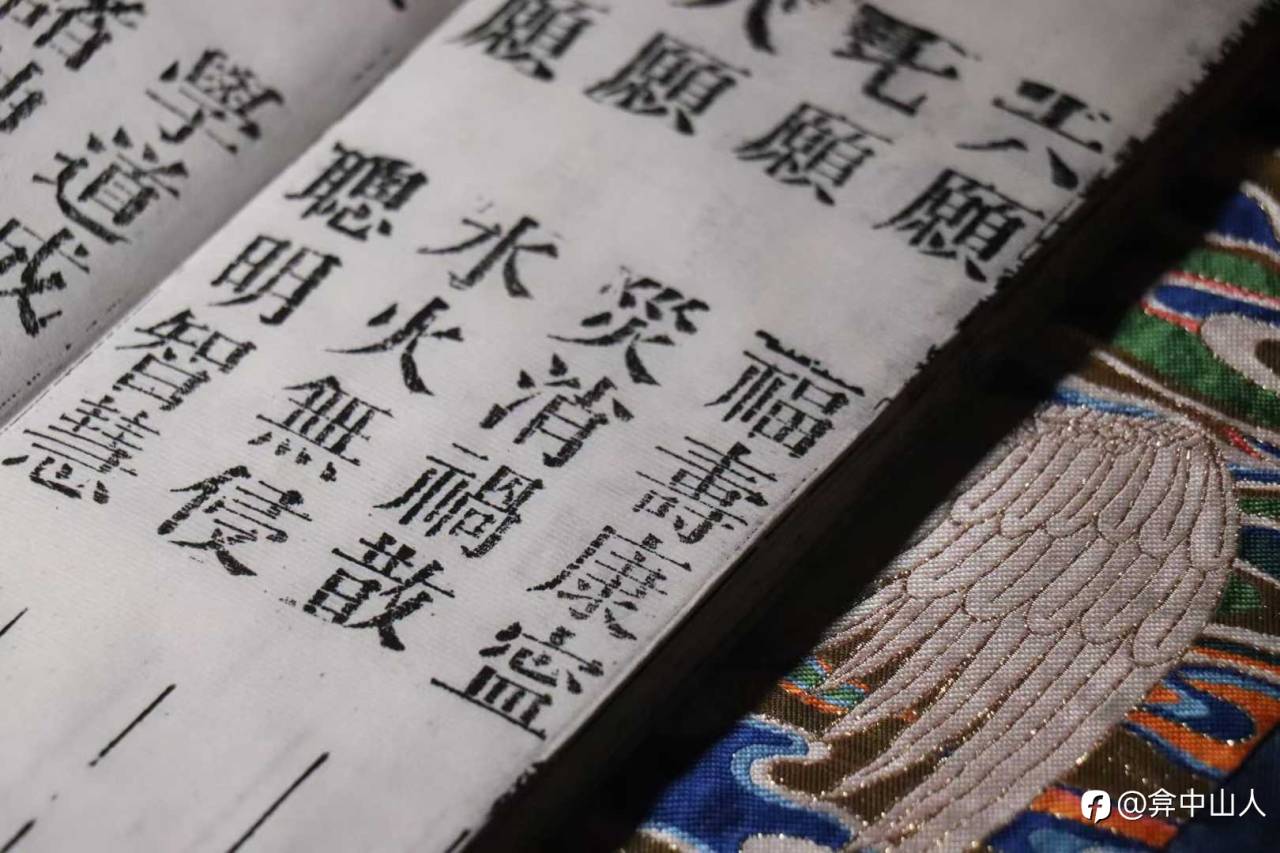 六願 福壽康寍
七願 災消禍散
八願 水火無侵
願 聰明智慧
學道成
@弇中山人